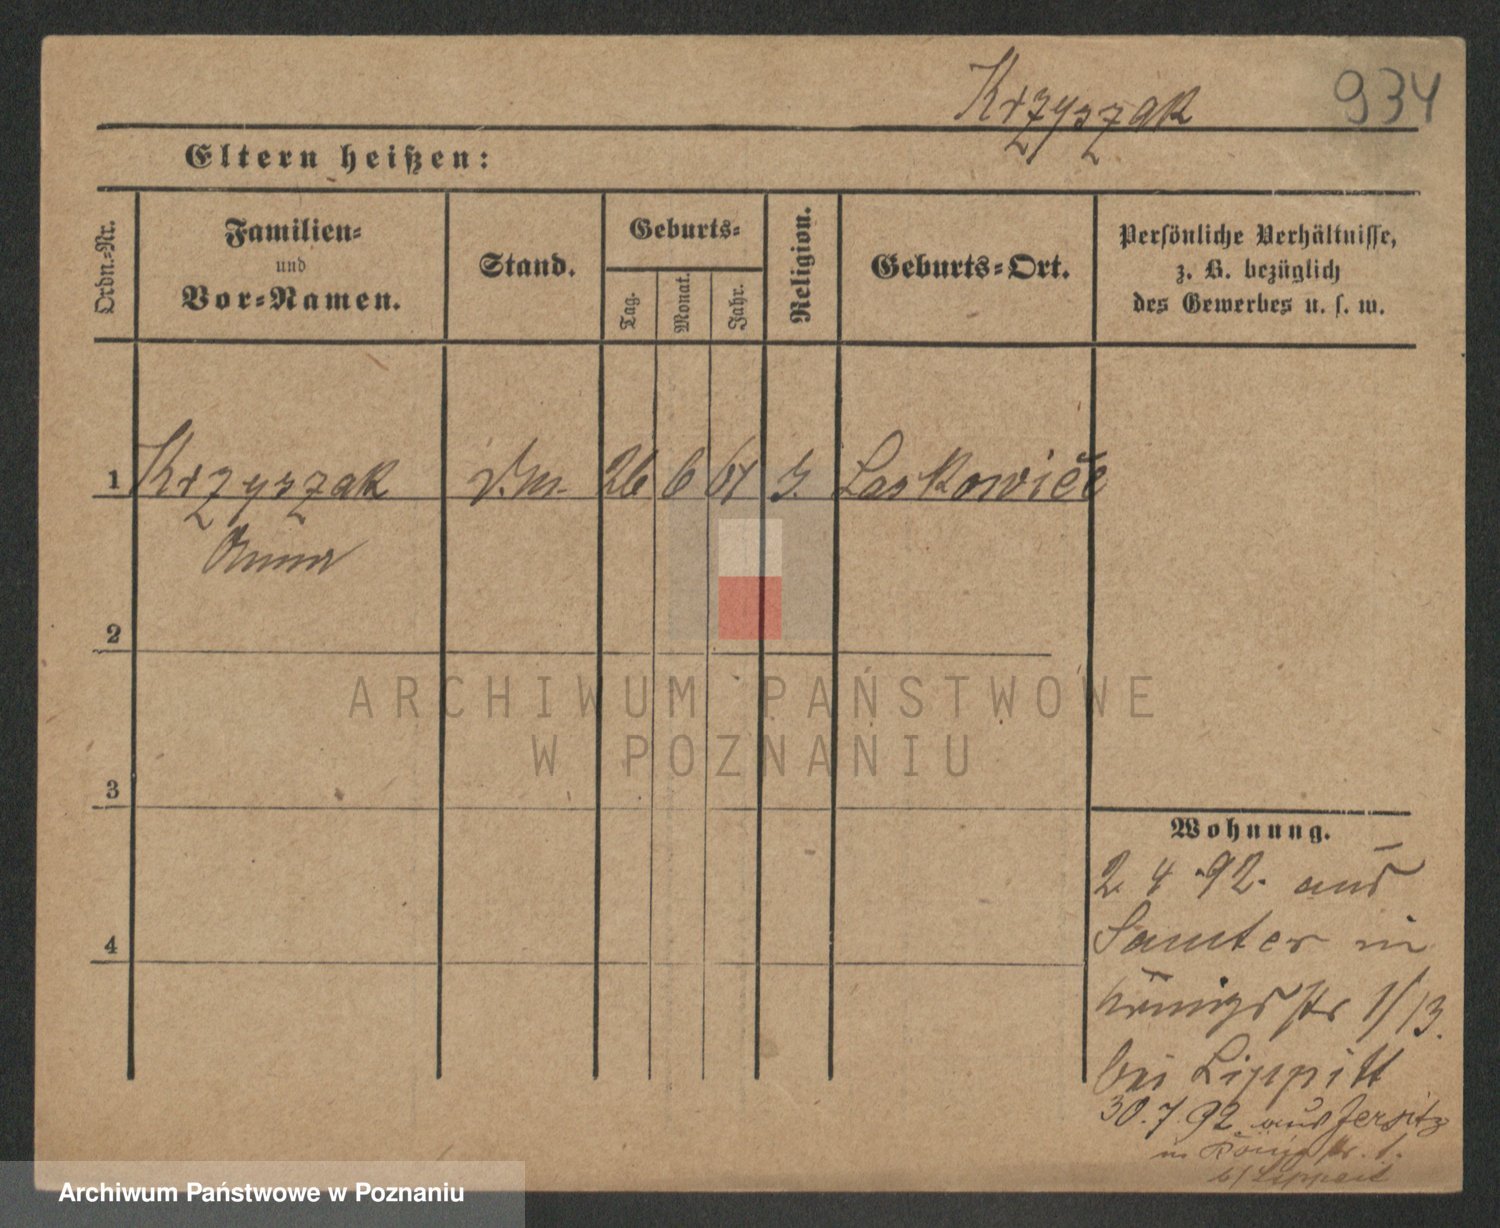 Krzyszak 934
Eltern heißen:
Ordn.-Nr.
Familien-
und
Vor-Namen.
Stand.
Geburts-
Tag.
Monat.
Jahr.
Religion.
Geburts-Ort.
Persönliche Verhältnisse,
z. B. bezüglich
des Gewerbes u. s. w.
1 Krzyszak 26 6 61 Laskowice
Anna
2
3
4
Wohnung.
2. 4. 92. aus
Samter in
Königsstr 1/13.
bei Lippitt
30.7.92 aus Jersitz
in Königstr. 1.
b/ Lippert
ARCHIWUM PAŃSTWOWE
W POZNANIU
Archiwum Państwowe w Poznaniu